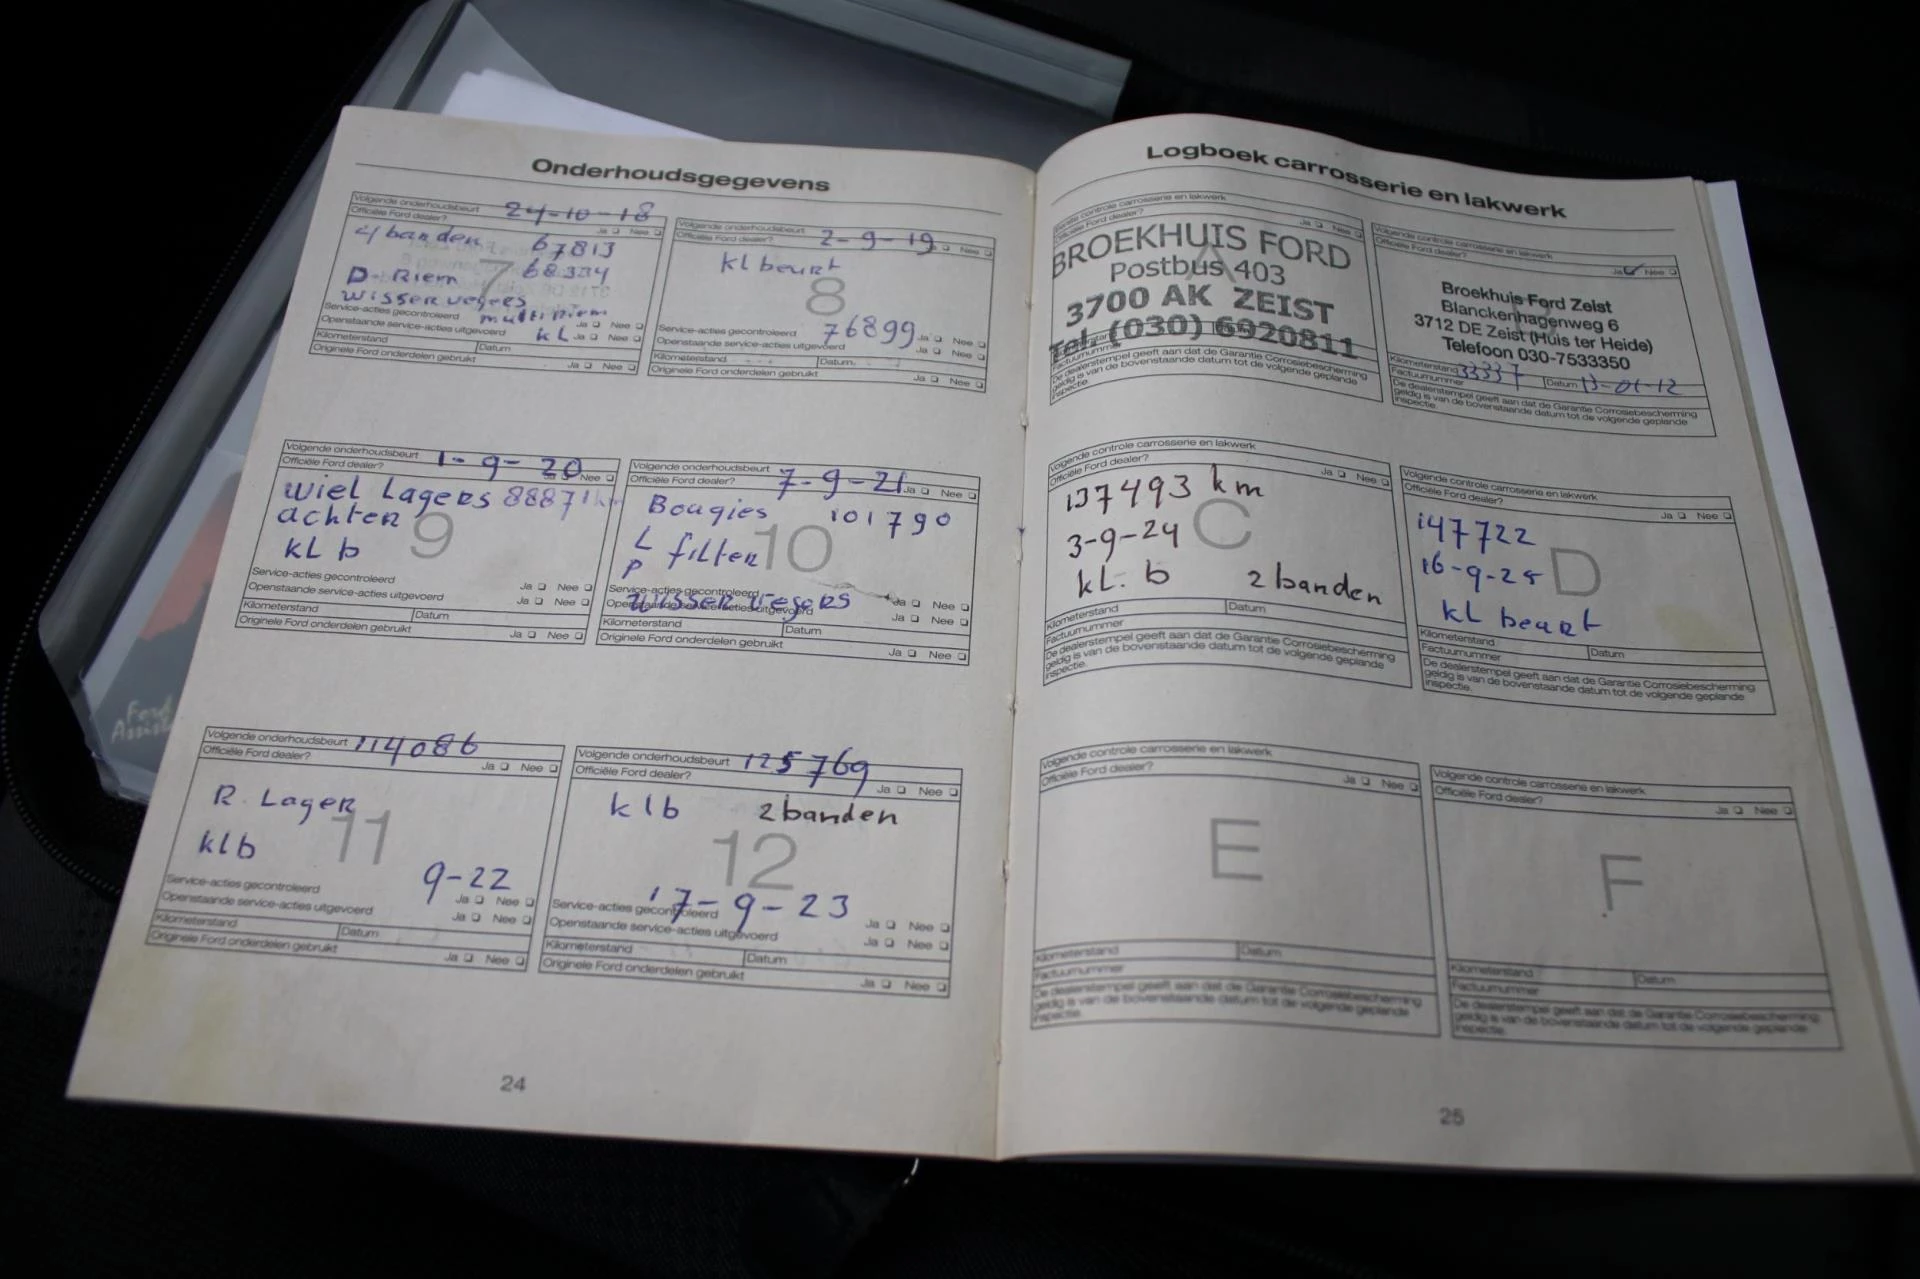 Onderhoudsgegevens
Volgende onderhoudsbeurt 24-10-18
Officiële Ford dealer? Ja Nee
4 banden 67813
7 68334
D-Riem
wisservegers
Service-acties gecontroleerd multiriem Ja Nee
Openstaande service-acties uitgevoerd kL Ja Nee
Kilometerstand Datum
Originele Ford onderdelen gebruikt Ja Nee
Volgende onderhoudsbeurt 2-9-19
Officiële Ford dealer? Ja Nee
kl beurt
8
Service-acties gecontroleerd 76899 Ja Nee
Openstaande service-acties uitgevoerd Ja Nee
Kilometerstand Datum
Originele Ford onderdelen gebruikt Ja Nee
Volgende onderhoudsbeurt 1-9-20
Officiële Ford dealer? Ja Nee
wiel Lagers 88871km
achter 9
kL b
Service-acties gecontroleerd Ja Nee
Openstaande service-acties uitgevoerd Ja Nee
Kilometerstand Datum
Originele Ford onderdelen gebruikt Ja Nee
Volgende onderhoudsbeurt 7-9-21
Officiële Ford dealer? Ja Nee
Bougies 101790
L filter 10
P
Service-acties gecontroleerd Ja Nee
wisser vegers
Openstaande service-acties uitgevoerd Ja Nee
Kilometerstand Datum
Originele Ford onderdelen gebruikt Ja Nee
Volgende onderhoudsbeurt 114086
Officiële Ford dealer? Ja Nee
R. Lager
11
klb
9-22
Service-acties gecontroleerd Ja Nee
Openstaande service-acties uitgevoerd Ja Nee
Kilometerstand Datum
Originele Ford onderdelen gebruikt Ja Nee
Volgende onderhoudsbeurt 125769
Officiële Ford dealer? Ja Nee
klb 2 banden
12
17-9-23
Service-acties gecontroleerd Ja Nee
Openstaande service-acties uitgevoerd Ja Nee
Kilometerstand Datum
Originele Ford onderdelen gebruikt Ja Nee
24
Logboek carrosserie en lakwerk
controle carrosserie en lakwerk
Officiële Ford dealer? Ja Nee
A
BROEKHUIS FORD
Postbus 403
3700 AK ZEIST
Tel. (030) 6920811
Factuurnummer
De dealerstempel geeft aan dat de Garantie Corrosiebescherming
geldig is van de bovenstaande datum tot de volgende geplande
inspectie.
Volgende controle carrosserie en lakwerk
Officiële Ford dealer? Ja Nee
B
Broekhuis Ford Zeist
Blanckenhagenweg 6
3712 DE Zeist (Huis ter Heide)
Telefoon 030-7533350
Kilometerstand 33337 Datum 13-01-12
Factuurnummer
De dealerstempel geeft aan dat de Garantie Corrosiebescherming
geldig is van de bovenstaande datum tot de volgende geplande
inspectie.
Volgende controle carrosserie en lakwerk
Officiële Ford dealer? Ja Nee
137493 km
3-9-24 C
kl. b 2 banden
Kilometerstand Datum
Factuurnummer
De dealerstempel geeft aan dat de Garantie Corrosiebescherming
geldig is van de bovenstaande datum tot de volgende geplande
inspectie.
Volgende controle carrosserie en lakwerk
Officiële Ford dealer? Ja Nee
147722
16-9-25 D
kl beurt
Kilometerstand Datum
Factuurnummer
De dealerstempel geeft aan dat de Garantie Corrosiebescherming
geldig is van de bovenstaande datum tot de volgende geplande
inspectie.
Volgende controle carrosserie en lakwerk
Officiële Ford dealer? Ja Nee
E
Kilometerstand Datum
Factuurnummer
De dealerstempel geeft aan dat de Garantie Corrosiebescherming
geldig is van de bovenstaande datum tot de volgende geplande
inspectie.
Volgende controle carrosserie en lakwerk
Officiële Ford dealer? Ja Nee
F
Kilometerstand Datum
Factuurnummer
De dealerstempel geeft aan dat de Garantie Corrosiebescherming
geldig is van de bovenstaande datum tot de volgende geplande
inspectie.
25
Ford